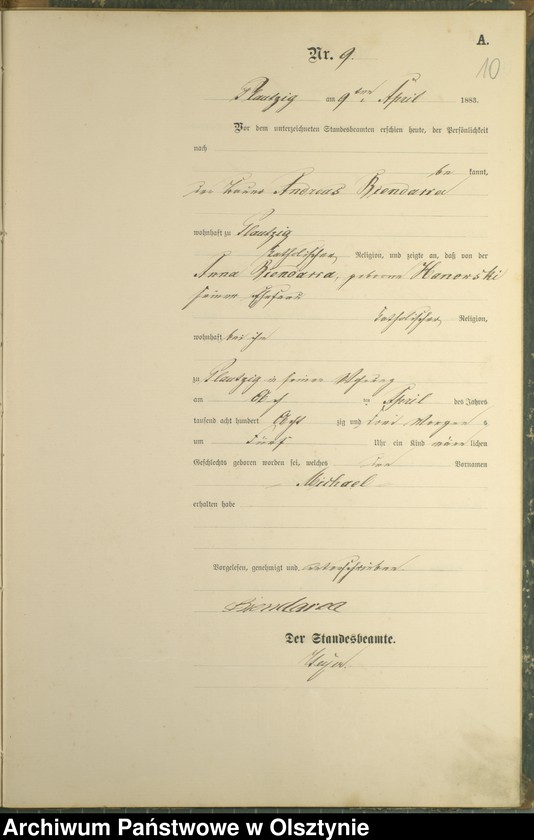 A.
10
Nr. 9.
Plautzig am 9ten April 1883.
Vor dem unterzeichneten Standesbeamten erschien heute, der Persönlichkeit
nach
be kannt,
der Bauer Andreas Biendarra
wohnhaft zu Plautzig
katholischer Religion, und zeigte an, daß von der
Anna Biendarra, geborene Hanowski
seiner Ehefrau
katholischer Religion,
wohnhaft bei ihm
zu Plautzig in seiner Wohnung
am April des Jahres
tausend acht hundert acht zig und drei Morgen s
um fünf Uhr ein Kind männ lichen
Geschlechts geboren worden sei, welches den Vornamen
Michael
erhalten habe
Vorgelesen, genehmigt und unterschrieben
Biendarra
Der Standesbeamte.
Archiwum Państwowe w Olsztynie